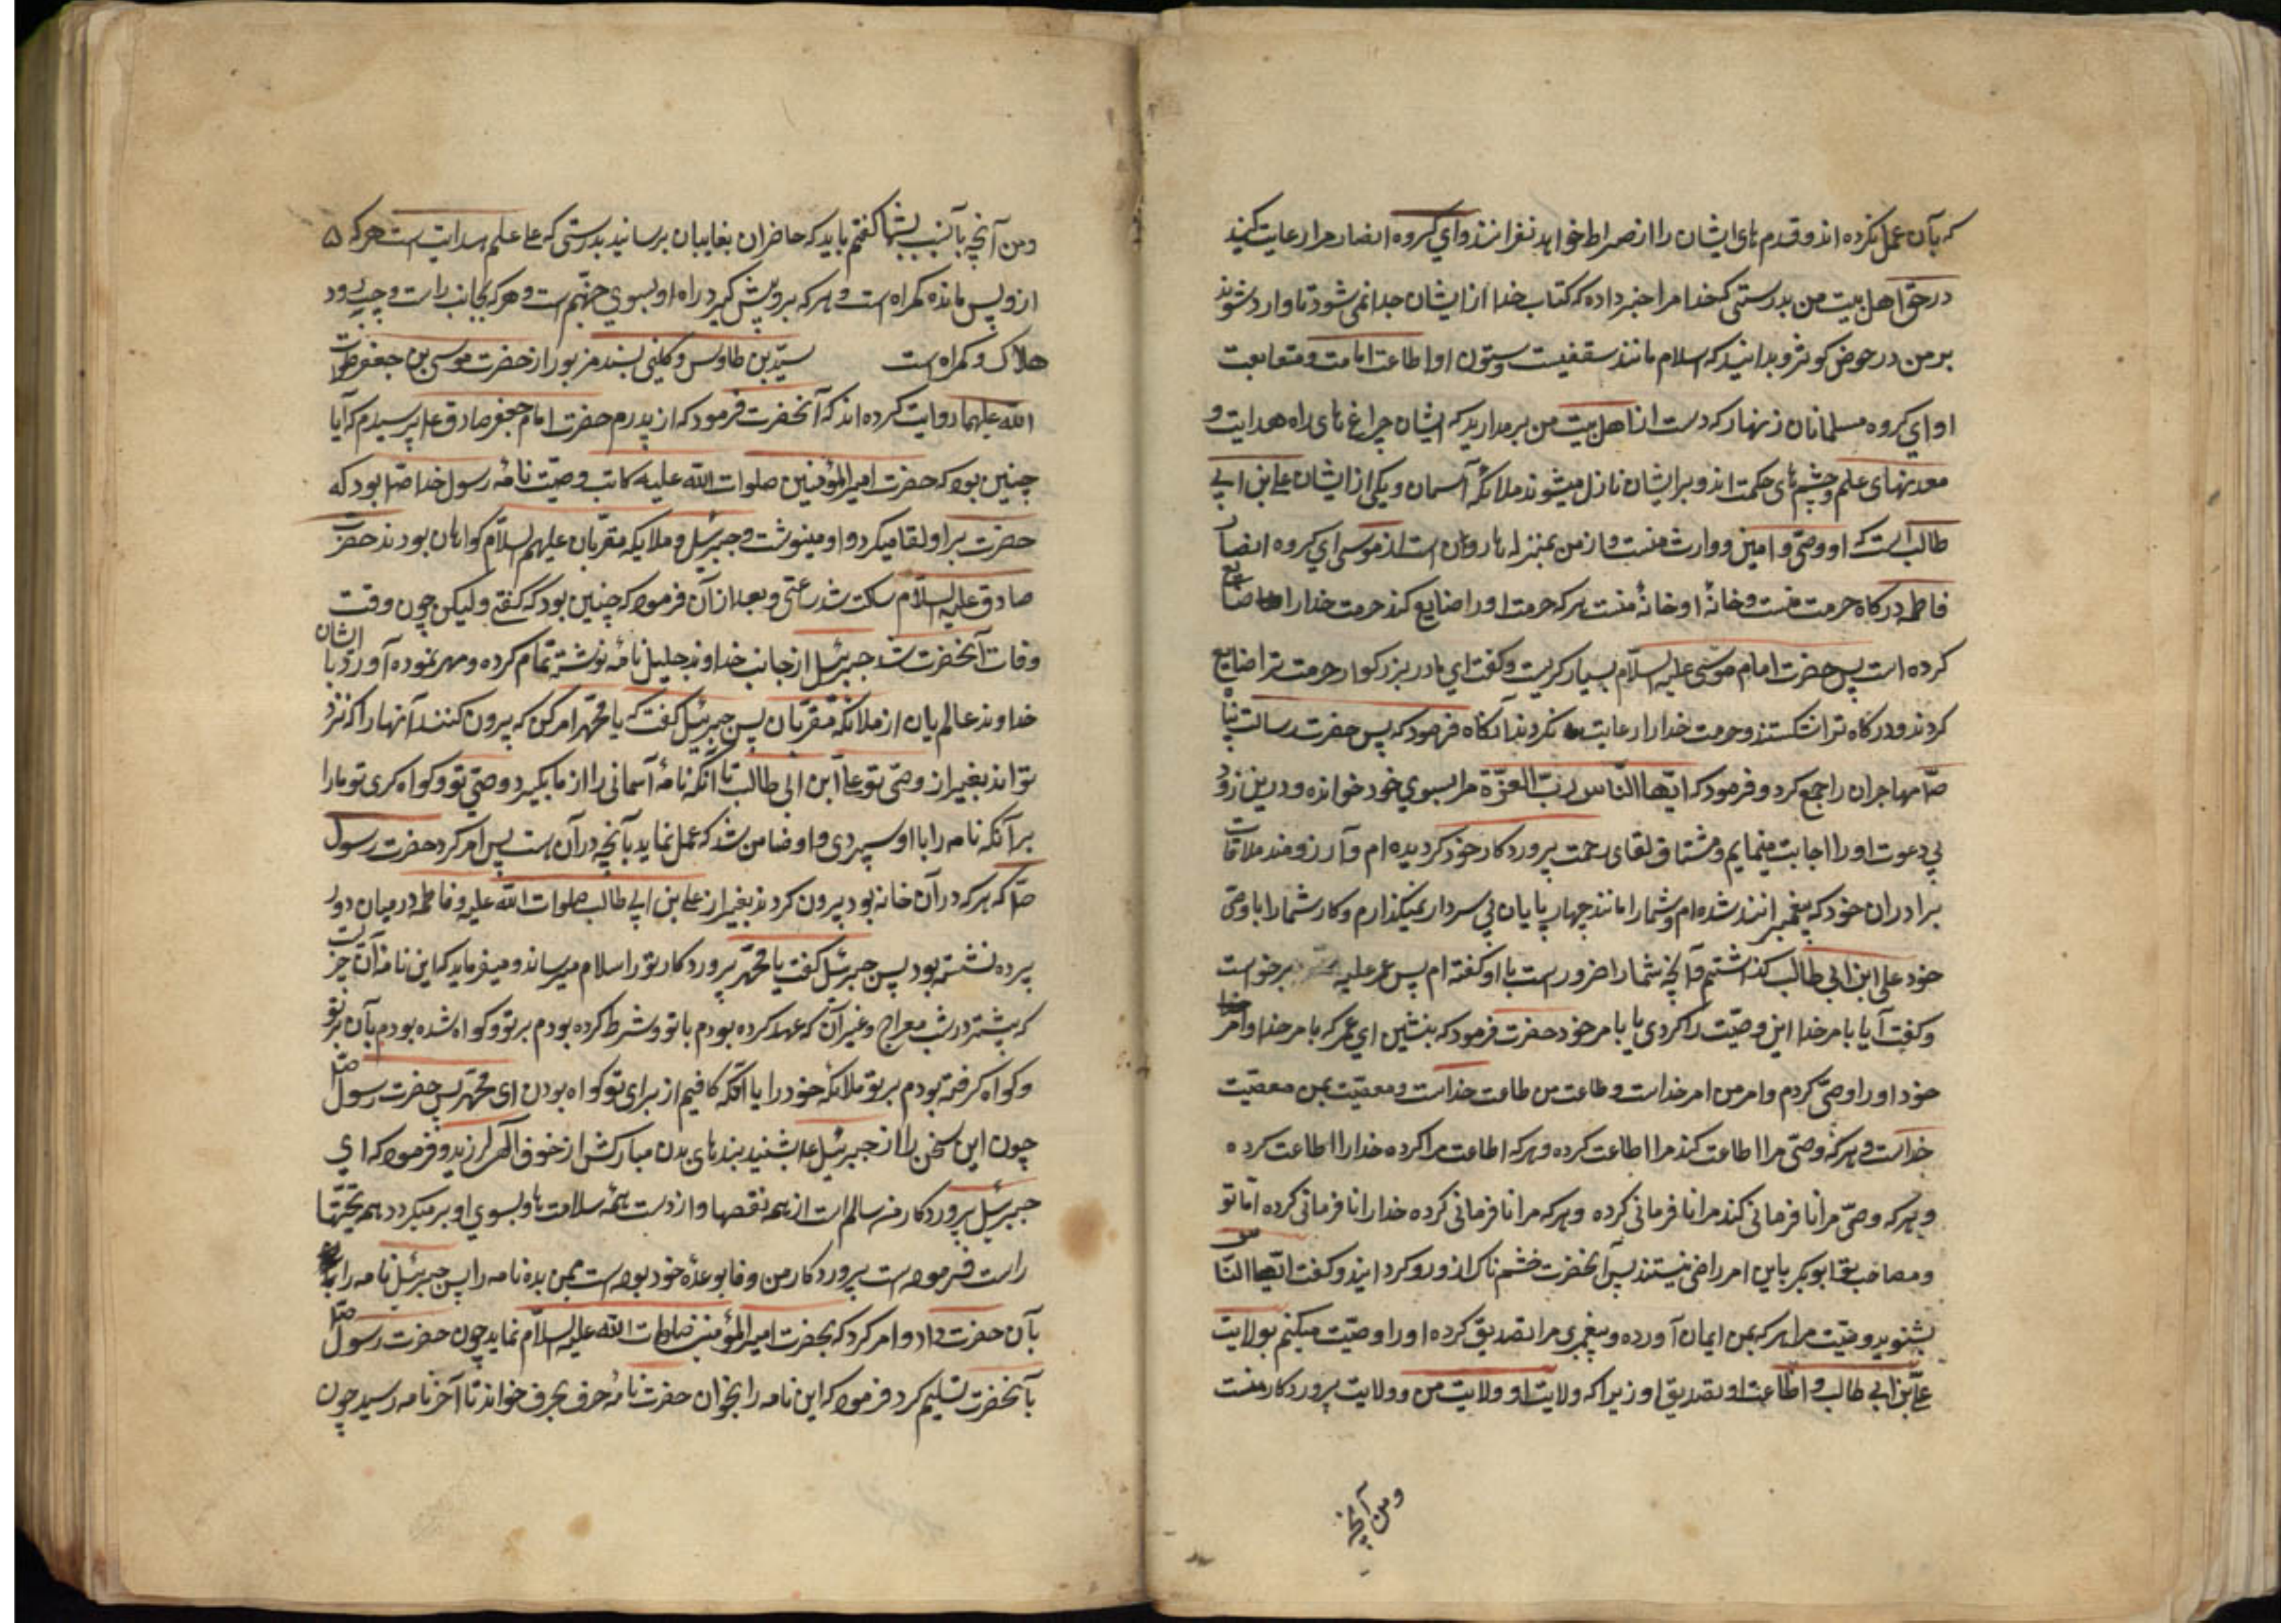 که بآن عمل نکرده اند و قدم های ایشان را از صراط خواهد نغزانند و ای گروه انصار مرا رعایت کنید
در حق اهل بیت من بدرستی که خدا مرا خبر داده که کتاب خدا از ایشان جدا نمی شود تا وارد شوند
بر من در حوض کوثر و بدانید که اسلام مانند سقفیست و ستون او اطاعت امامت و متابعت
او ای گروه مسلمانان زنهار که دست از اهل بیت من برمدارید که ایشان چراغ های راه هدایت و
معدنهای علم و چشم های حکمت اند و بر ایشان نازل میشوند ملائکه آسمان و یکی از ایشان علی بن ابی
طالب است که او وصی و امین و وارث منست و از من بمنزله هارون است از موسی ای گروه انصار
فاطمه درگاه حرمت منست و خانۀ او خانۀ منست هر که حرمت او را ضایع کند حرمت خدا را ضایع
کرده است پس حضرت امام موسی علیه السلام بسیار گریست و گفت ای مادر بزرگوار حرمت ترا ضایع
کردند و درگاه ترا شکستند و حرمت خدا را رعایت نکردند آنگاه فرمود که پس حضرت رسالت پناه
صلعم مهاجران را جمع کرد و فرمود که ایها الناس رب العزة مرا بسوی خود خوانده و درین زودی
بی دعوت او را اجابت مینمایم و مشتاق لقای رحمت پروردگار خود گردیده ام و آرزومند ملاقات
برادران خود که پیغمبرانند شده ام و شما را مانند چهارپایان بی سردار نمیگذارم و کار شما را با وصی
خود علی ابن ابی طالب گذاشتم و آنچه شما را ضرور است با او گفته ام پس عمر علیه برخواست
و گفت آیا بامر خدا این وصیت را کردی یا بامر خود حضرت فرمود که بنشین ای عمر که بامر خدا و امر
خود او را وصی کردم و امر من امر خداست و طاعت من طاعت خداست و معصیت من معصیت
خداست و هر که وصی مرا اطاعت کند مرا اطاعت کرده و هر که اطاعت مرا کرده خدا را اطاعت کرده
و هر که وصی مرا نافرمانی کند مرا نافرمانی کرده و هر که مرا نافرمانی کرده خدا را نافرمانی کرده اما تو
و مصاحب تو ابوبکر باین امر راضی نیستند پس آنحضرت خشم ناک از او رو گردانید و گفت ایها الناس
بشنوید وصیت مرا هر که بمن ایمان آورده و پیغمبری مرا تصدیق کرده او را وصیت میکنم بولایت
علی بن ابی طالب و اطاعت او و تصدیق او زیرا که ولایت او ولایت من و ولایت پروردگار منست
و من آنچه
و من آنچه بشما گفتم باید که حاضران بغایبان برسانید بدرستی که علی علم هدایت است هر که
از او پس مانده گمراه است و هر که بر او پیش گیرد راه او بسوی جهنم است و هر که بجانب راست و چپ رود
هلاک و گمراه است سید بن طاوس و کلینی بسند مزبور از حضرت موسی بن جعفر صلوات
الله علیهما روایت کرده اند که آنحضرت فرمود که از پدرم حضرت امام جعفر صادق پرسیدم که آیا
چنین بود که حضرت امیر المؤمنین صلوات الله علیه کاتب وصیت نامۀ رسول خدا بود که
حضرت بر او القا میکرد و او مینوشت و جبرئیل و ملایکه مقربان علیهم السلام گواهان بودند حضرت
صادق علیه السلام ساکت شد ساعتی و بعد از آن فرمود که چنین بود که گفتی و لیکن چون وقت
وفات آنحضرت شد جبرئیل از جانب خداوند جلیل نامۀ نوشته تمام کرده و مهر نموده آورد با ایشان
خداوند عالمیان از ملائکه مقربان پس جبرئیل گفت که یا محمد امر کن که بیرون کنند آنها را که نزد
تو اند بغیر از وصی تو علی ابن ابی طالب تا آنکه نامۀ آسمانی را از ما بگیرد وصی تو و گواه گری تو ما را
بر آنکه نامه را با او سپردی و او ضامن شد که عمل نماید بآنچه در آن است پس امر کرد حضرت رسول
که هر که در آن خانه بود بیرون کردند بغیر از علی بن ابی طالب صلوات الله علیه و فاطمه در میان در و
پرده نشسته بود پس جبرئیل گفت یا محمد پروردگار تو را سلام میرساند و میفرماید که این نامه آن چیزیست
که پیشتر در شب معراج و غیر آن که عهد کرده بودم با تو و شرط کرده بودم بر تو و گواه شده بودم بآن بر تو
و گواه گرفته بودم بر تو ملائکه خود را با آنکه کافیم از برای تو گواه بودن ای محمد پس حضرت رسول
چون این سخن را از جبرئیل بشنید بندهای بدن مبارکش از خوف الهی لرزید و فرمود که ای
جبرئیل پروردگار من سالم است از همه نقصها و از اوست همۀ سلامت ها و بسوی او برمیگردد همه تحیتها
راست فرموده است پروردگار من و وفا بوعدۀ خود بوده است بمن بده نامه را پس جبرئیل نامه را
بآن حضرت داد و امر کرد که بحضرت امیر المؤمنین صلوات الله علیه السلام نماید چون حضرت رسول
بآنحضرت تسلیم کرد فرمود که این نامه را بخوان حضرت نامۀ حرف بحرف خواند تا آخر نامه رسید چون